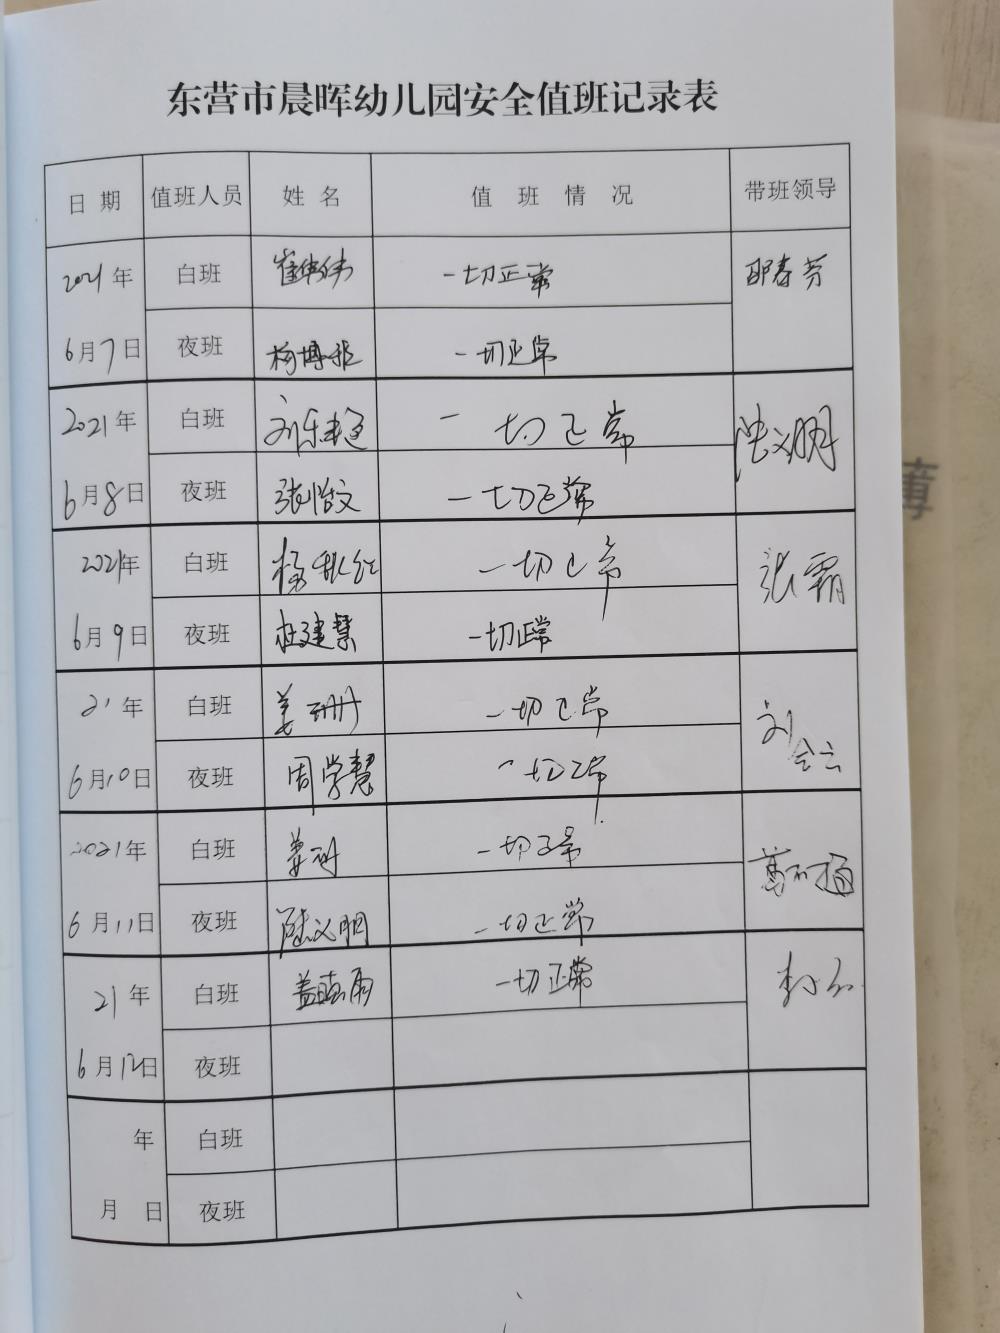 东营市晨晖幼儿园安全值班记录表
日期 值班人员 姓名 值班情况 带班领导
2021年 白班 崔伟伟 一切正常 邵春芳
6月7日 夜班 杨博 一切正常
2021年 白班 刘乐 一切正常 陆文明
6月8日 夜班 张怡文 一切正常
2021年 白班 杨秋红 一切正常 张霜
6月9日 夜班 杜建慧 一切正常
21年 白班 姜珊 一切正常 刘会云
6月10日 夜班 周学慧 一切正常
2021年 白班 姜珊 一切正常
6月11日 夜班 陆文明 一切正常
21年 白班 盖雨 一切正常
6月12日 夜班
年 白班
月 日 夜班
薄